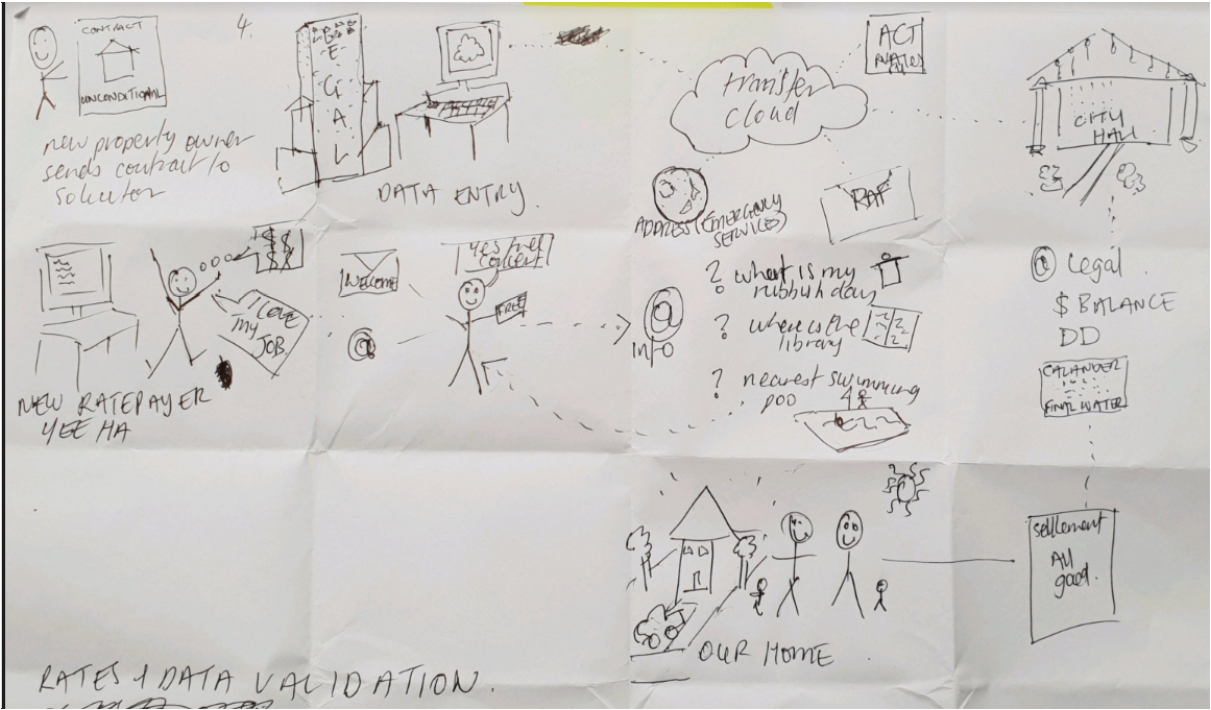 CONTRACT
UNCONDITIONAL
new property owner
sends contract to
solicitor
4.
LEGAL
DATA ENTRY.
transfer
cloud
ACT
CITY
HALL
ADDRESS (EMERGENCY
SERVICES)
RAF
NEW RATEPAYER
YEE HA
$ $
$ $
I LOVE
my
JOB.
WELCOME
@
yes I will
consent
FREE
@
INFO
? what is my
rubbish day
? where is the
library
? nearest swimming
poo
@ Legal.
$ BALANCE
DD
CALANDER
FINAL WATER
settlement
All
good.
OUR HOME.
RATES & DATA VALIDATION.